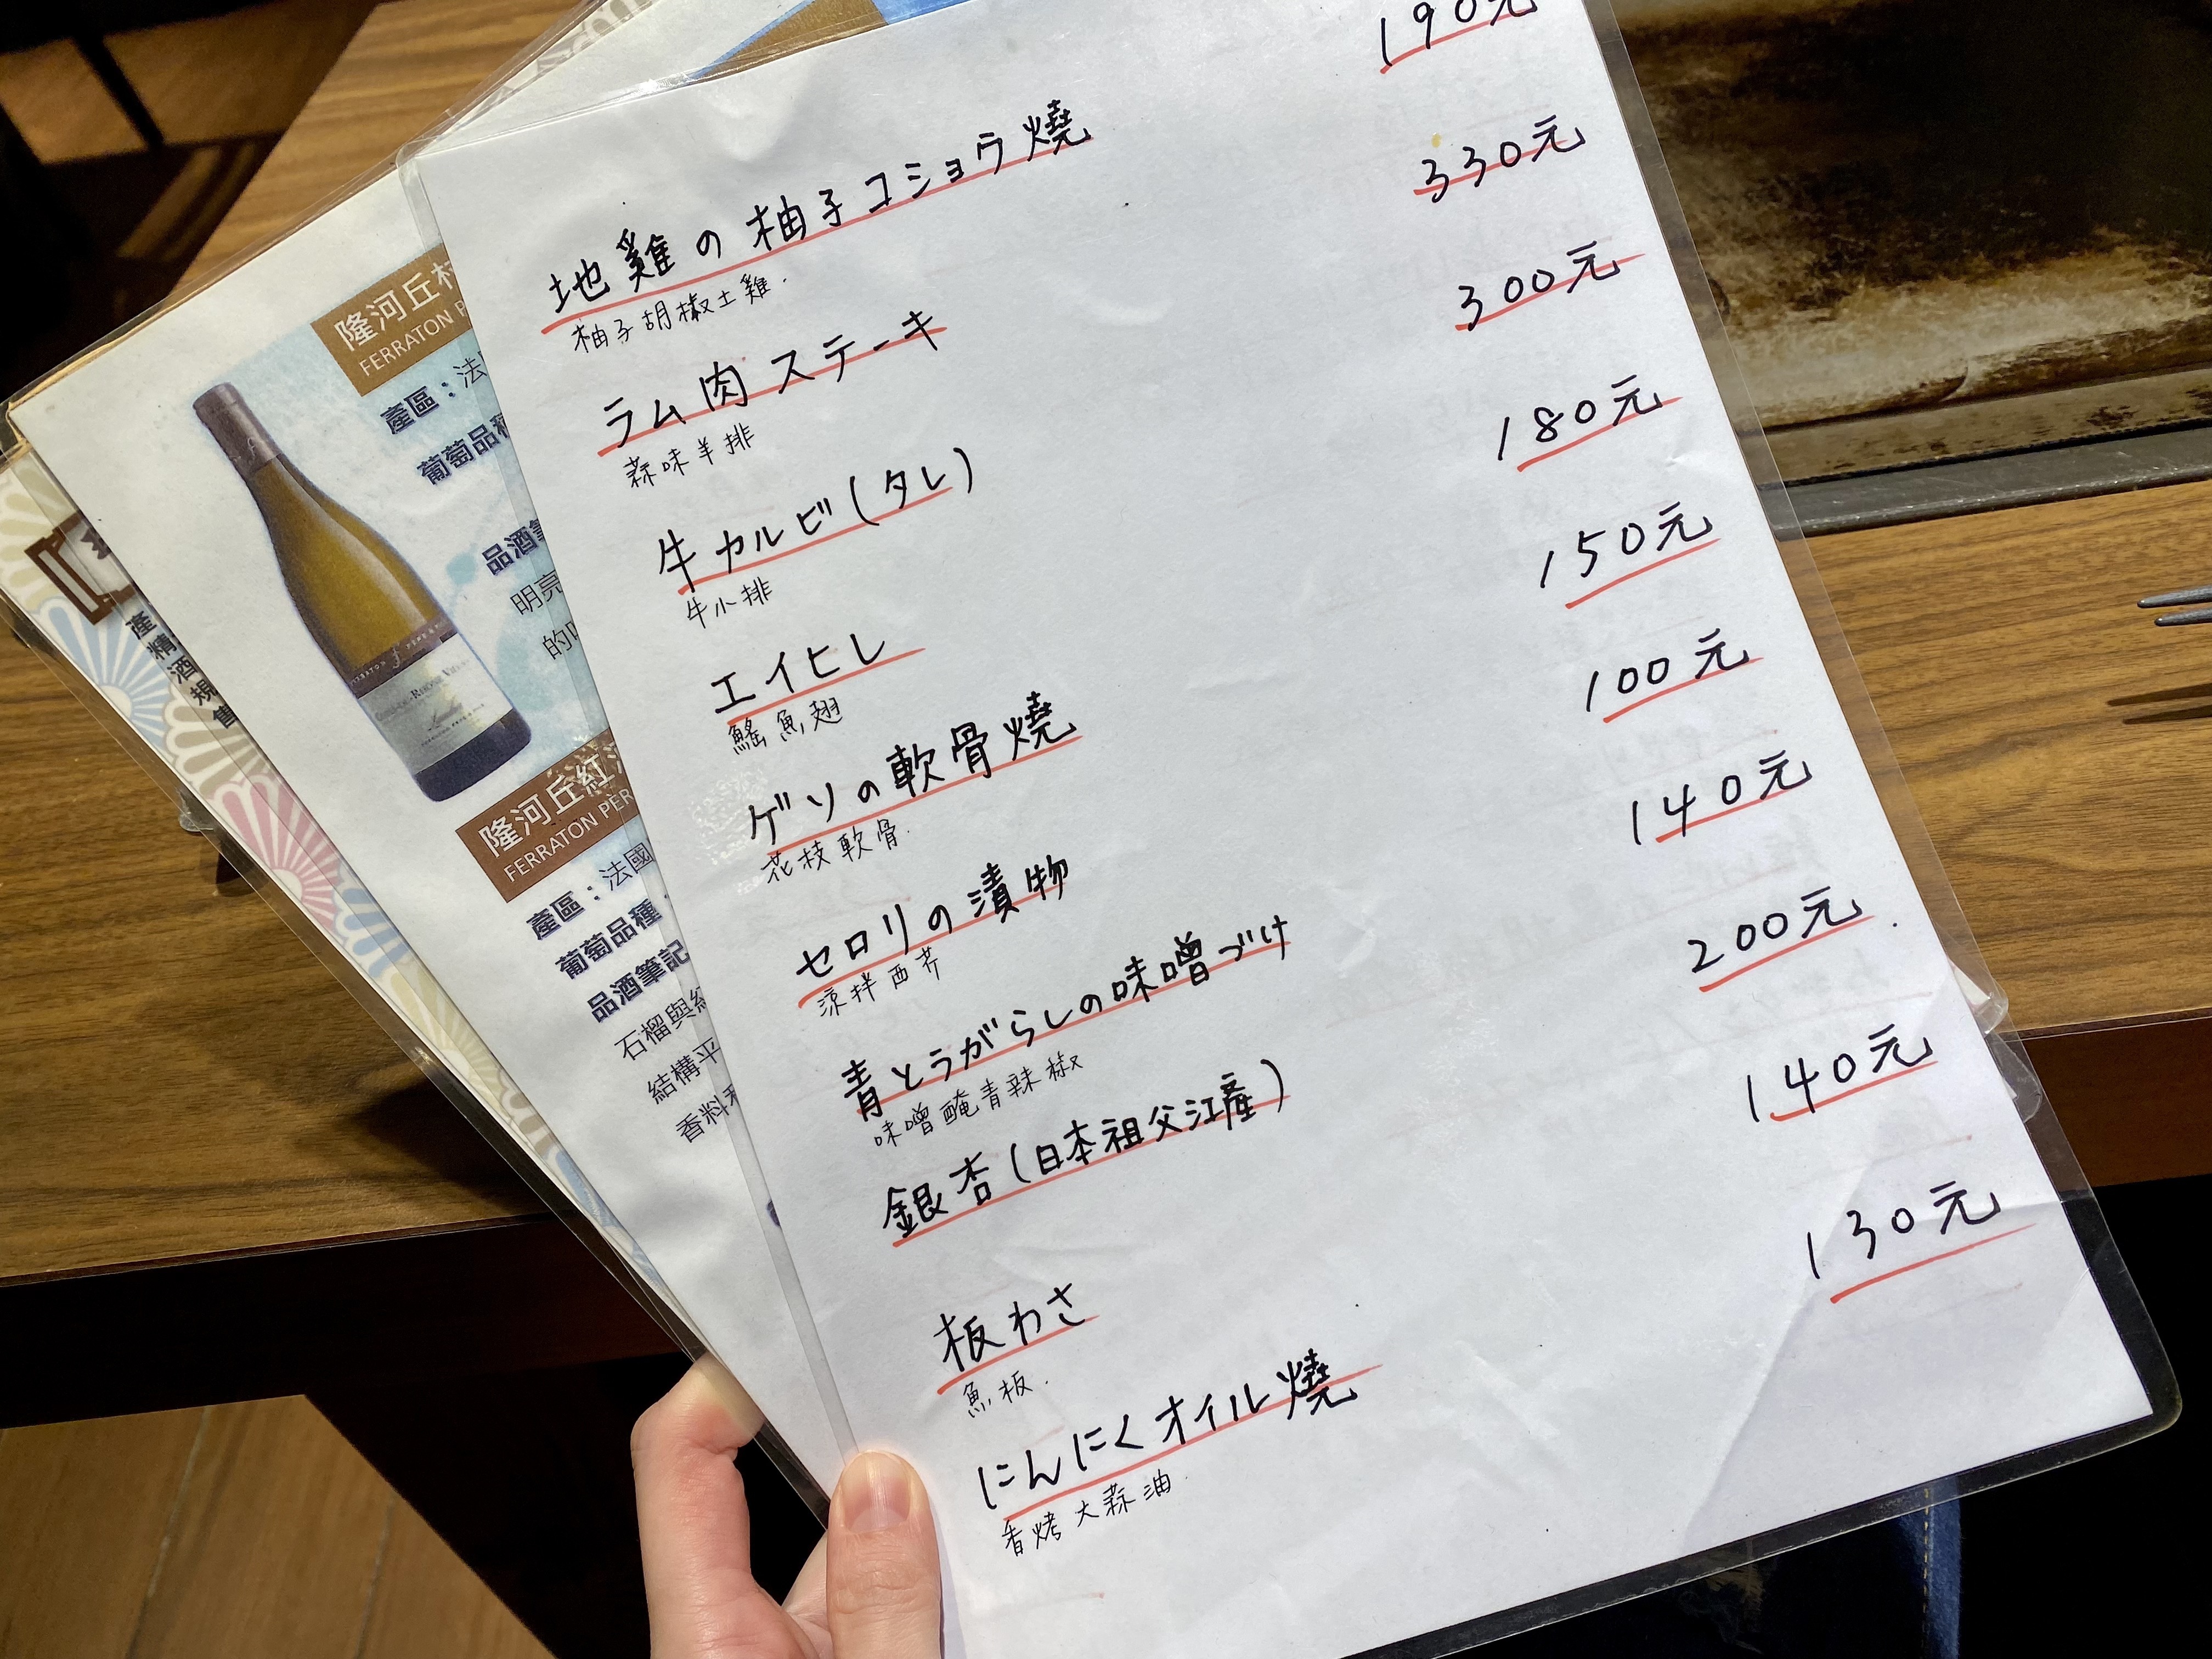 190元
地雞の柚子コショウ燒
柚子胡椒土雞.
330元
ラム肉ステーキ
蒜味羊排
300元
牛カルビ(タレ)
牛小排
180元
エイヒレ
鰩魚翅
150元
ゲソの軟骨燒
花枝軟骨.
100元
セロリの漬物
涼拌西芹
140元
青とうがらしの味噌づけ
味噌醃青辣椒
200元.
銀杏(日本祖父江産)
140元
板わさ
魚板.
130元
にんにくオイル燒
香烤大蒜油.
隆河丘村
FERRATON P
產區：法
葡萄品種
品酒筆
明亮
的
隆河丘紅
FERRATON PÈR
產區：法國
葡萄品種
品酒筆記
石榴與紅
結構平
香料
產
精
酒
規
售